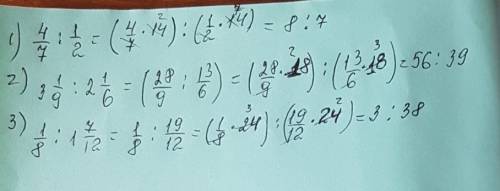 1) 4/7 : 1/2 = (4/7 · 14²) : (1/2 · 14⁷) = 8 : 7
2) 3 1/9 : 2 1/6 = (28/9 : 13/6) = (28/9 · 18²) : (13/6 · 18³) = 56 : 39
3) 1/8 : 1 7/12 = 1/8 : 19/12 = (1/8 · 24³) : (19/12 · 24²) = 3 : 38